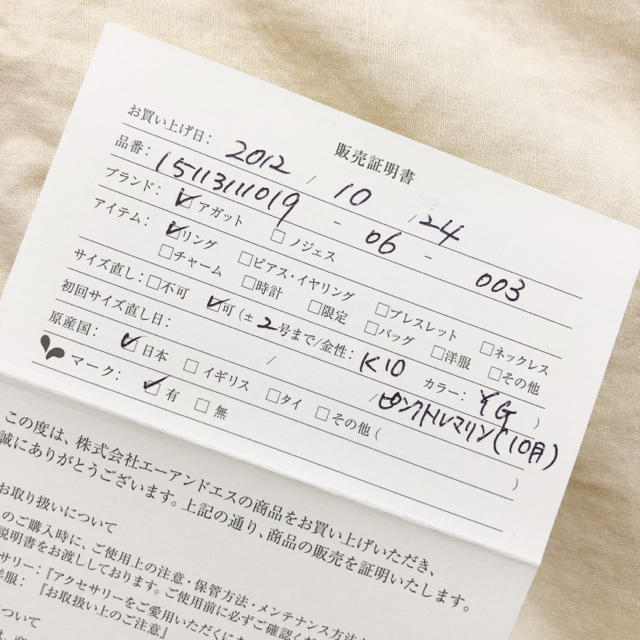 販売証明書
お買い上げ日: 2012 / 10 / 24
品番: 15113111019 - 06 - 003
ブランド: ☑アガット □ノジェス
アイテム: ☑リング □ピアス・イヤリング □ブレスレット □ネックレス
□チャーム □時計 □限定 □バッグ □洋服 □その他
サイズ直し: □不可 ☑可(± 2号まで/金性: K10 カラー: YG )
初回サイズ直し日: / /
ピンクトルマリン(10月)
原産国: ☑日本 □イギリス □タイ □その他( )
マーク: ☑有 □無
この度は、株式会社エーアンドエスの商品をお買い上げいただき、
誠にありがとうございます。上記の通り、商品の販売を証明いたします。
お取り扱いについて
のご購入時に、ご使用上の注意・保管方法・メンテナンス方法
説明書をお渡ししております。ご使用前に必ずご確認くだ
サリー:『アクセサリーをご愛用いただくにあ
洋服:『お取扱い上のご注意』
について